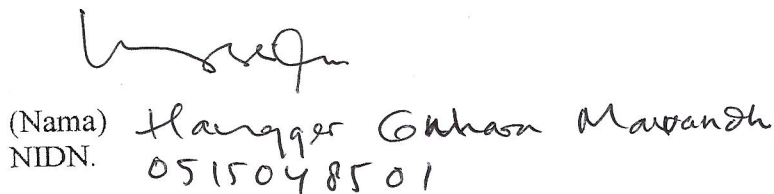 (Nama) Hangger Gahara Mawandh
NIDN. 0515048501